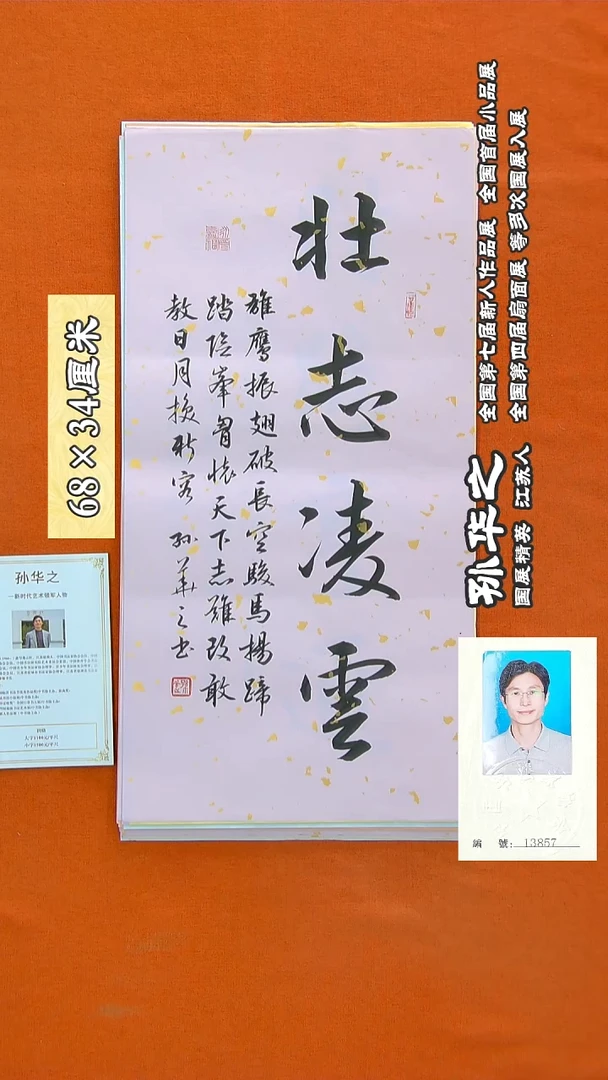 壮志凌雲
雄鹰振翅破長空駿馬揚蹄
踏险峯胷懷天下志難改敢
教日月换新容 孙華之书
68×34厘米
孙华之
国展精英 江苏人
全国第七届新人作品展 全国首届小品展
全国第四届扇面展 等多次国展入展
孙华之
—新时代艺术领军人物
编 號: 13857